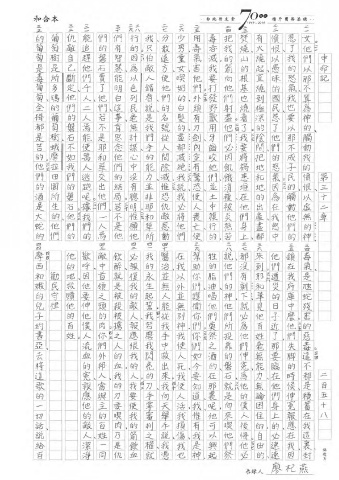 和合本
七十
申命記　第三十二章　二百五十八
他們以那不算為神的觸動我的憤恨以虛無的神
惹了我的怒氣我也要以那不成子民的觸動他們的
憤恨以愚昧的國民惹了他們的怒氣因為在我怒中
有火燒起直燒到極深的陰間把地和地的出產盡都
焚燒山的根基也燒著了我要將禍患堆在他們身上
把我的箭向他們射盡他們必因飢餓消瘦被炎熱苦
毒吞滅我要打發野獸用牙齒咬他們並土中腹行的
用毒氣害他們外頭有刀劍內室有驚恐使人喪亡使
少男童女吃奶的白髮的盡都滅絕我說我必將他們
分散遠方使他們的名號從人間除滅惟恐仇敵惹動
我只怕敵人錯看說是我們手的能力並非耶和華所
行的因為以色列民毫無計謀心中沒有聰明惟願他
們有智慧能明白這事肯思念他們的結局若不是他
們的磐石賣了他們若不是耶和華交出他們一人焉
能追趕他們千人二人焉能使萬人逃跑呢據我們的
仇敵自己斷定他們的磐石不如我們的磐石他們的
葡萄樹是所多瑪的葡萄樹蛾摩拉田園所生的他們
的葡萄是毒葡萄全掛都是苦的他們的酒是大蛇的
毒氣是虺蛇殘害的惡毒這不都是積蓄在我這裏封
鎖在我府庫中麼他們失腳的時候伸冤報應在我因
他們遭災的日子近了那要臨在他們身上的必速速
來到耶和華見他百姓毫無能力無論困住的自由的
都沒有剩下就必為他們伸冤為他的僕人後悔他必
說他們的神他們所投靠的磐石就是向來吃他們祭
牲的脂油喝他們奠祭之酒的在哪裏呢他可以興起
幫助你們護衛你們你們如今要知道我惟有我是神
在我以外並無別神我使人死我使人活我損傷我也
醫治並無人能從我手中救出來我向天舉手說我憑
我的永生起誓我若磨我閃亮的刀手掌審判之權就
必報復我的敵人報應恨我的人我要使我的箭飲血
飲醉就是被殺被擄之人的血我的刀要吃肉乃是仇
敵中首領之頭的肉你們外邦人當與主的百姓一同
歡呼因他要伸他僕人流血的冤報應他的敵人潔淨
他的地救贖他的百姓
勸民守律
摩西和嫩的兒子約書亞去將這歌的一切話說給百